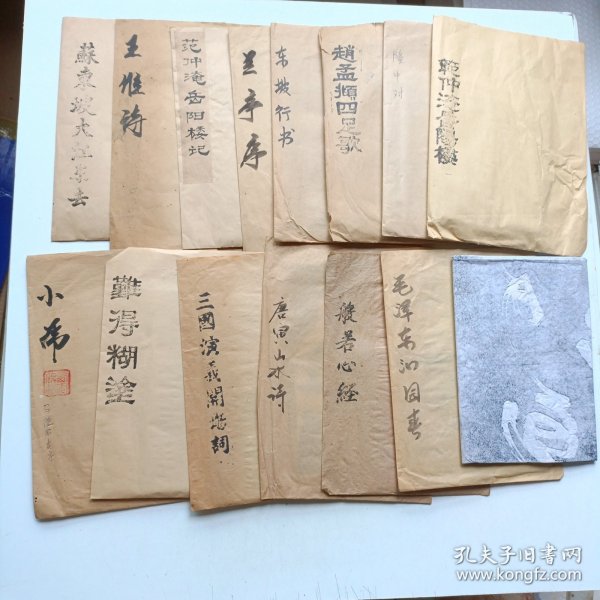 蘇東坡大江東去
王維詩
范仲淹岳阳楼记
兰亭序
东坡行书
趙孟頫四足歌
隆中对
范仲淹岳陽樓
小爲
難得糊塗
三國演義開卷詞
唐寅山水诗
般若心经
毛泽东沁园春
孔夫子旧书网
www.kongfz.com